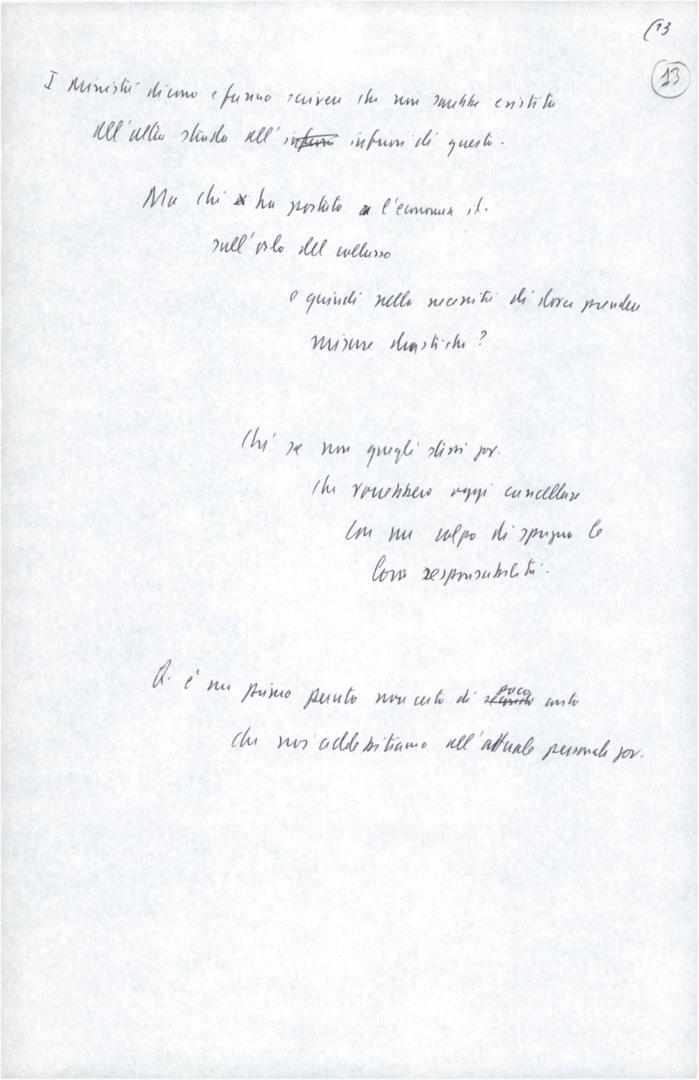 13
13
I Ministri dicono e fanno scrivere che non sarebbe esistita
all'altra strada all'infuori di questa.
Ma chi ha portato l'economia it.
sull'orlo del collasso
e quindi nella necessità di dover prendere
misure drastiche?
Chi se non quegli stessi gov.
che vorrebbero oggi cancellare
con un colpo di spugna le
loro responsabilità.
Q. è un primo punto non certo di poco conto
che noi addebitiamo all'attuale personale gov.